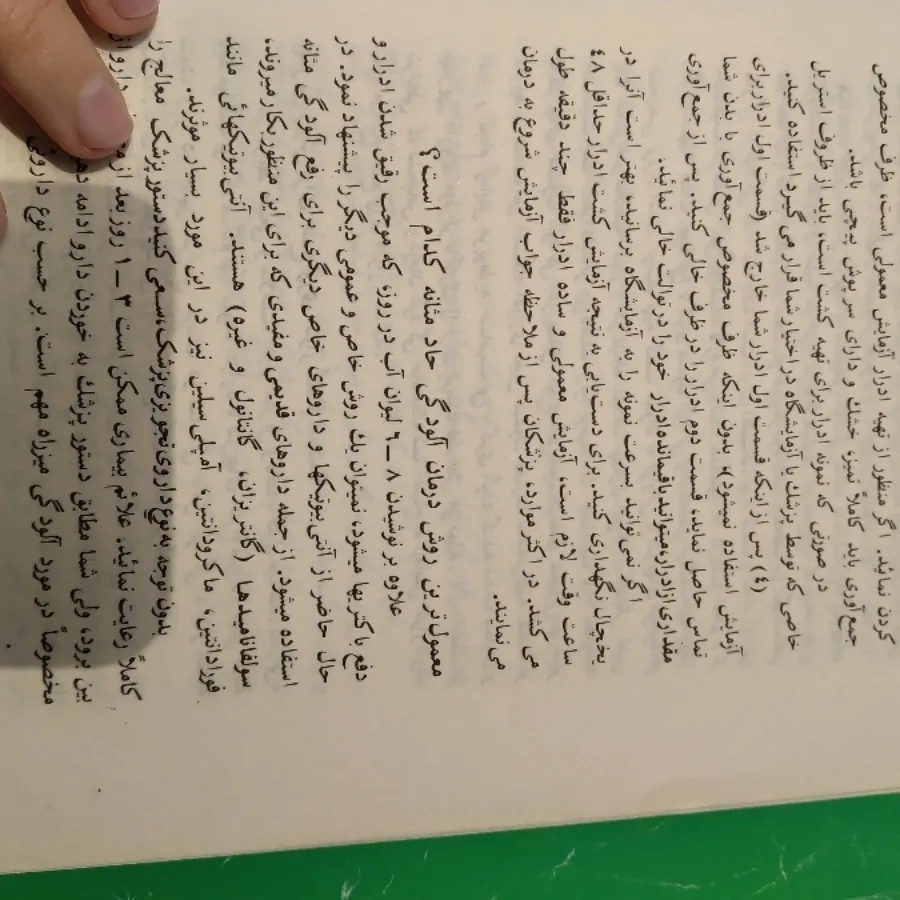 کردن نمائید. اگر منظور از تهیه ادرار آزمایش معمولی است، ظرف مخصوص
جمع‌آوری باید کاملاً تمیز، خشک و دارای سر پوش پیچی باشد.
در صورتی که نمونه ادرار برای تهیه کشت است، باید از ظروف استریل
خاصی که توسط پزشک یا آزمایشگاه در اختیار شما قرار می گیرد استفاده کنید.
(۴) پس از اینکه قسمت اول ادرار شما خارج شد (قسمت اول ادرار برای
آزمایش استفاده نمیشود)، بدون اینکه ظرف مخصوص جمع آوری با بدن شما
تماس حاصل نماید، قسمت دوم ادرار را در ظرف خالی کنید. پس از جمع آوری
مقداری از ادرار، میتوانید باقیمانده ادرار خود را در توالت خالی نمائید.
اگر نمی توانید بسرعت نمونه را به آزمایشگاه برسانید، بهتر است آنرا در
یخچال نگهداری کنید. برای دست‌یابی به نتیجه آزمایش کشت ادرار حداقل ۴۸
ساعت وقت لازم است، آزمایش معمولی و ساده ادرار فقط چند دقیقه طول
می کشد. در اکثر موارد، پزشکان پس از ملاحظه جواب آزمایش شروع به درمان
می نمایند.
معمول ترین روش درمان آلودگی حاد مثانه کدام است؟
علاوه بر نوشیدن ۸ – ۶ لیوان آب در روز، که موجب رقیق شدن ادرار و
دفع باکتریها میشود، نمیتوان یک روش خاص و عمومی دیگر را پیشنهاد نمود. در
حال حاضر از آنتی بیوتیکها و داروهای خاص دیگری برای رفع آلودگی مثانه
استفاده میشود. از جمله داروهای قدیمی و مفیدی که برای این منظور بکار میروند،
سولفانامیدها (گانتریزان، گانتانول و غیره) هستند. آنتی بیوتیکهائی مانند
فورادانتین، ماکرودانتین، آمپی سیلین نیز در این مورد بسیار موثرند.
بدون توجه به نوع داروی تجویزی پزشک، سعی کنید دستور پزشک معالج را
کاملاً رعایت نمائید. علائم بیماری ممکن است ۳ – ۱ روز بعد از دارو از
بین برود، ولی شما مطابق دستور پزشک به خوردن دارو ادامه
مخصوصاً در مورد آلودگی میزراه مهم است. بر حسب نوع داروئی